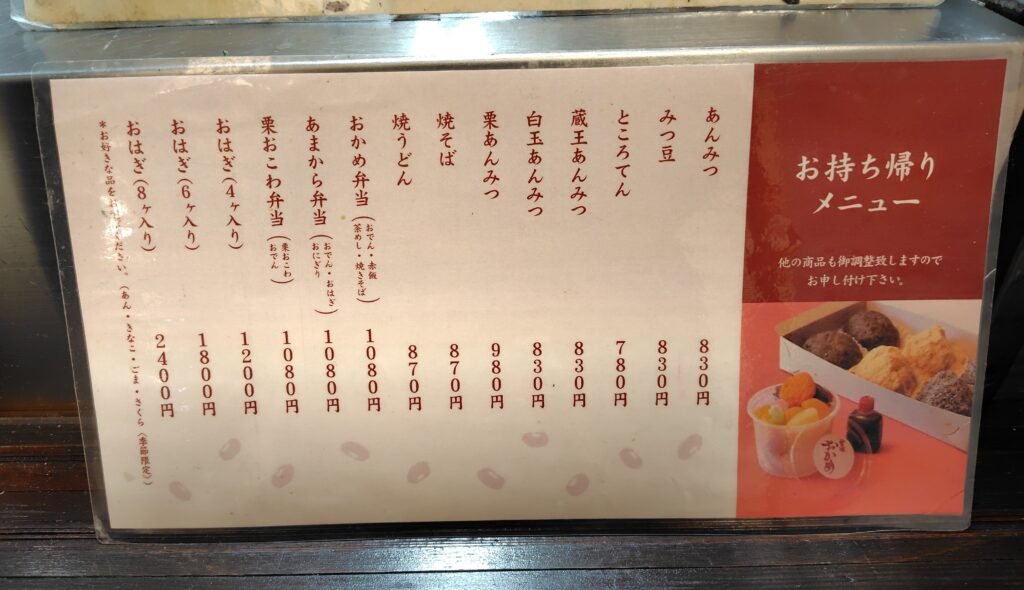 お持ち帰り
メニュー
他の商品も御調整致しますので
お申し付け下さい。
あんみつ 830円
みつ豆 830円
ところてん 780円
蔵王あんみつ 830円
白玉あんみつ 830円
栗あんみつ 980円
焼そば 870円
焼うどん 870円
おかめ弁当(おでん・赤飯 茶めし・焼きそば) 1080円
あまから弁当(おでん・おはぎ おにぎり) 1080円
栗おこわ弁当(栗おこわ おでん) 1080円
おはぎ(4ヶ入り) 1200円
おはぎ(6ヶ入り) 1800円
おはぎ(8ヶ入り) 2400円
*お好きな品を ください。(あん・きなこ・ごま・さくら(季節限定))
おかめ